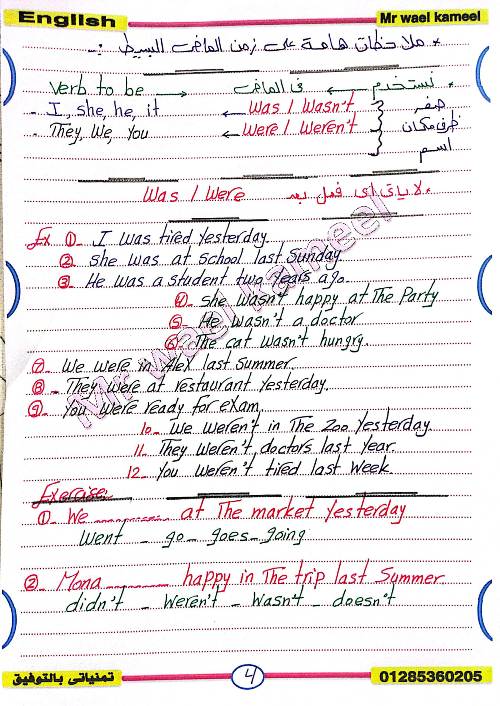 English
Mr wael kameel
* ملاحظات هامة على زمن الماضى البسيط :-
* نستخدم ← فى الماضى → Verb to be
- I, she, he, it ← Was / Wasn't صفر
- They, We, You ← Were / Weren't ظرف مكان
اسم
* لا ياتى اى فعل بعد Was / Were
Ex ①- I was tired yesterday.
②- She was at school last Sunday.
③- He was a student two years ago.
④- She wasn't happy at The Party
⑤- He wasn't a doctor
⑥- The cat wasn't hungry.
⑦- We were in Alex last summer.
⑧- They were at restaurant yesterday.
⑨- You were ready for exam.
10- We weren't in The Zoo yesterday
11- They weren't doctors last year.
12- You weren't tired last week
Exercise:
①- We ............ at The market yesterday
went - go - goes - going
②- Mona ............ happy in The trip last Summer
didn't - weren't - wasn't - doesn't
Mr wael kameel
تمنياتى بالتوفيق
4
01285360205